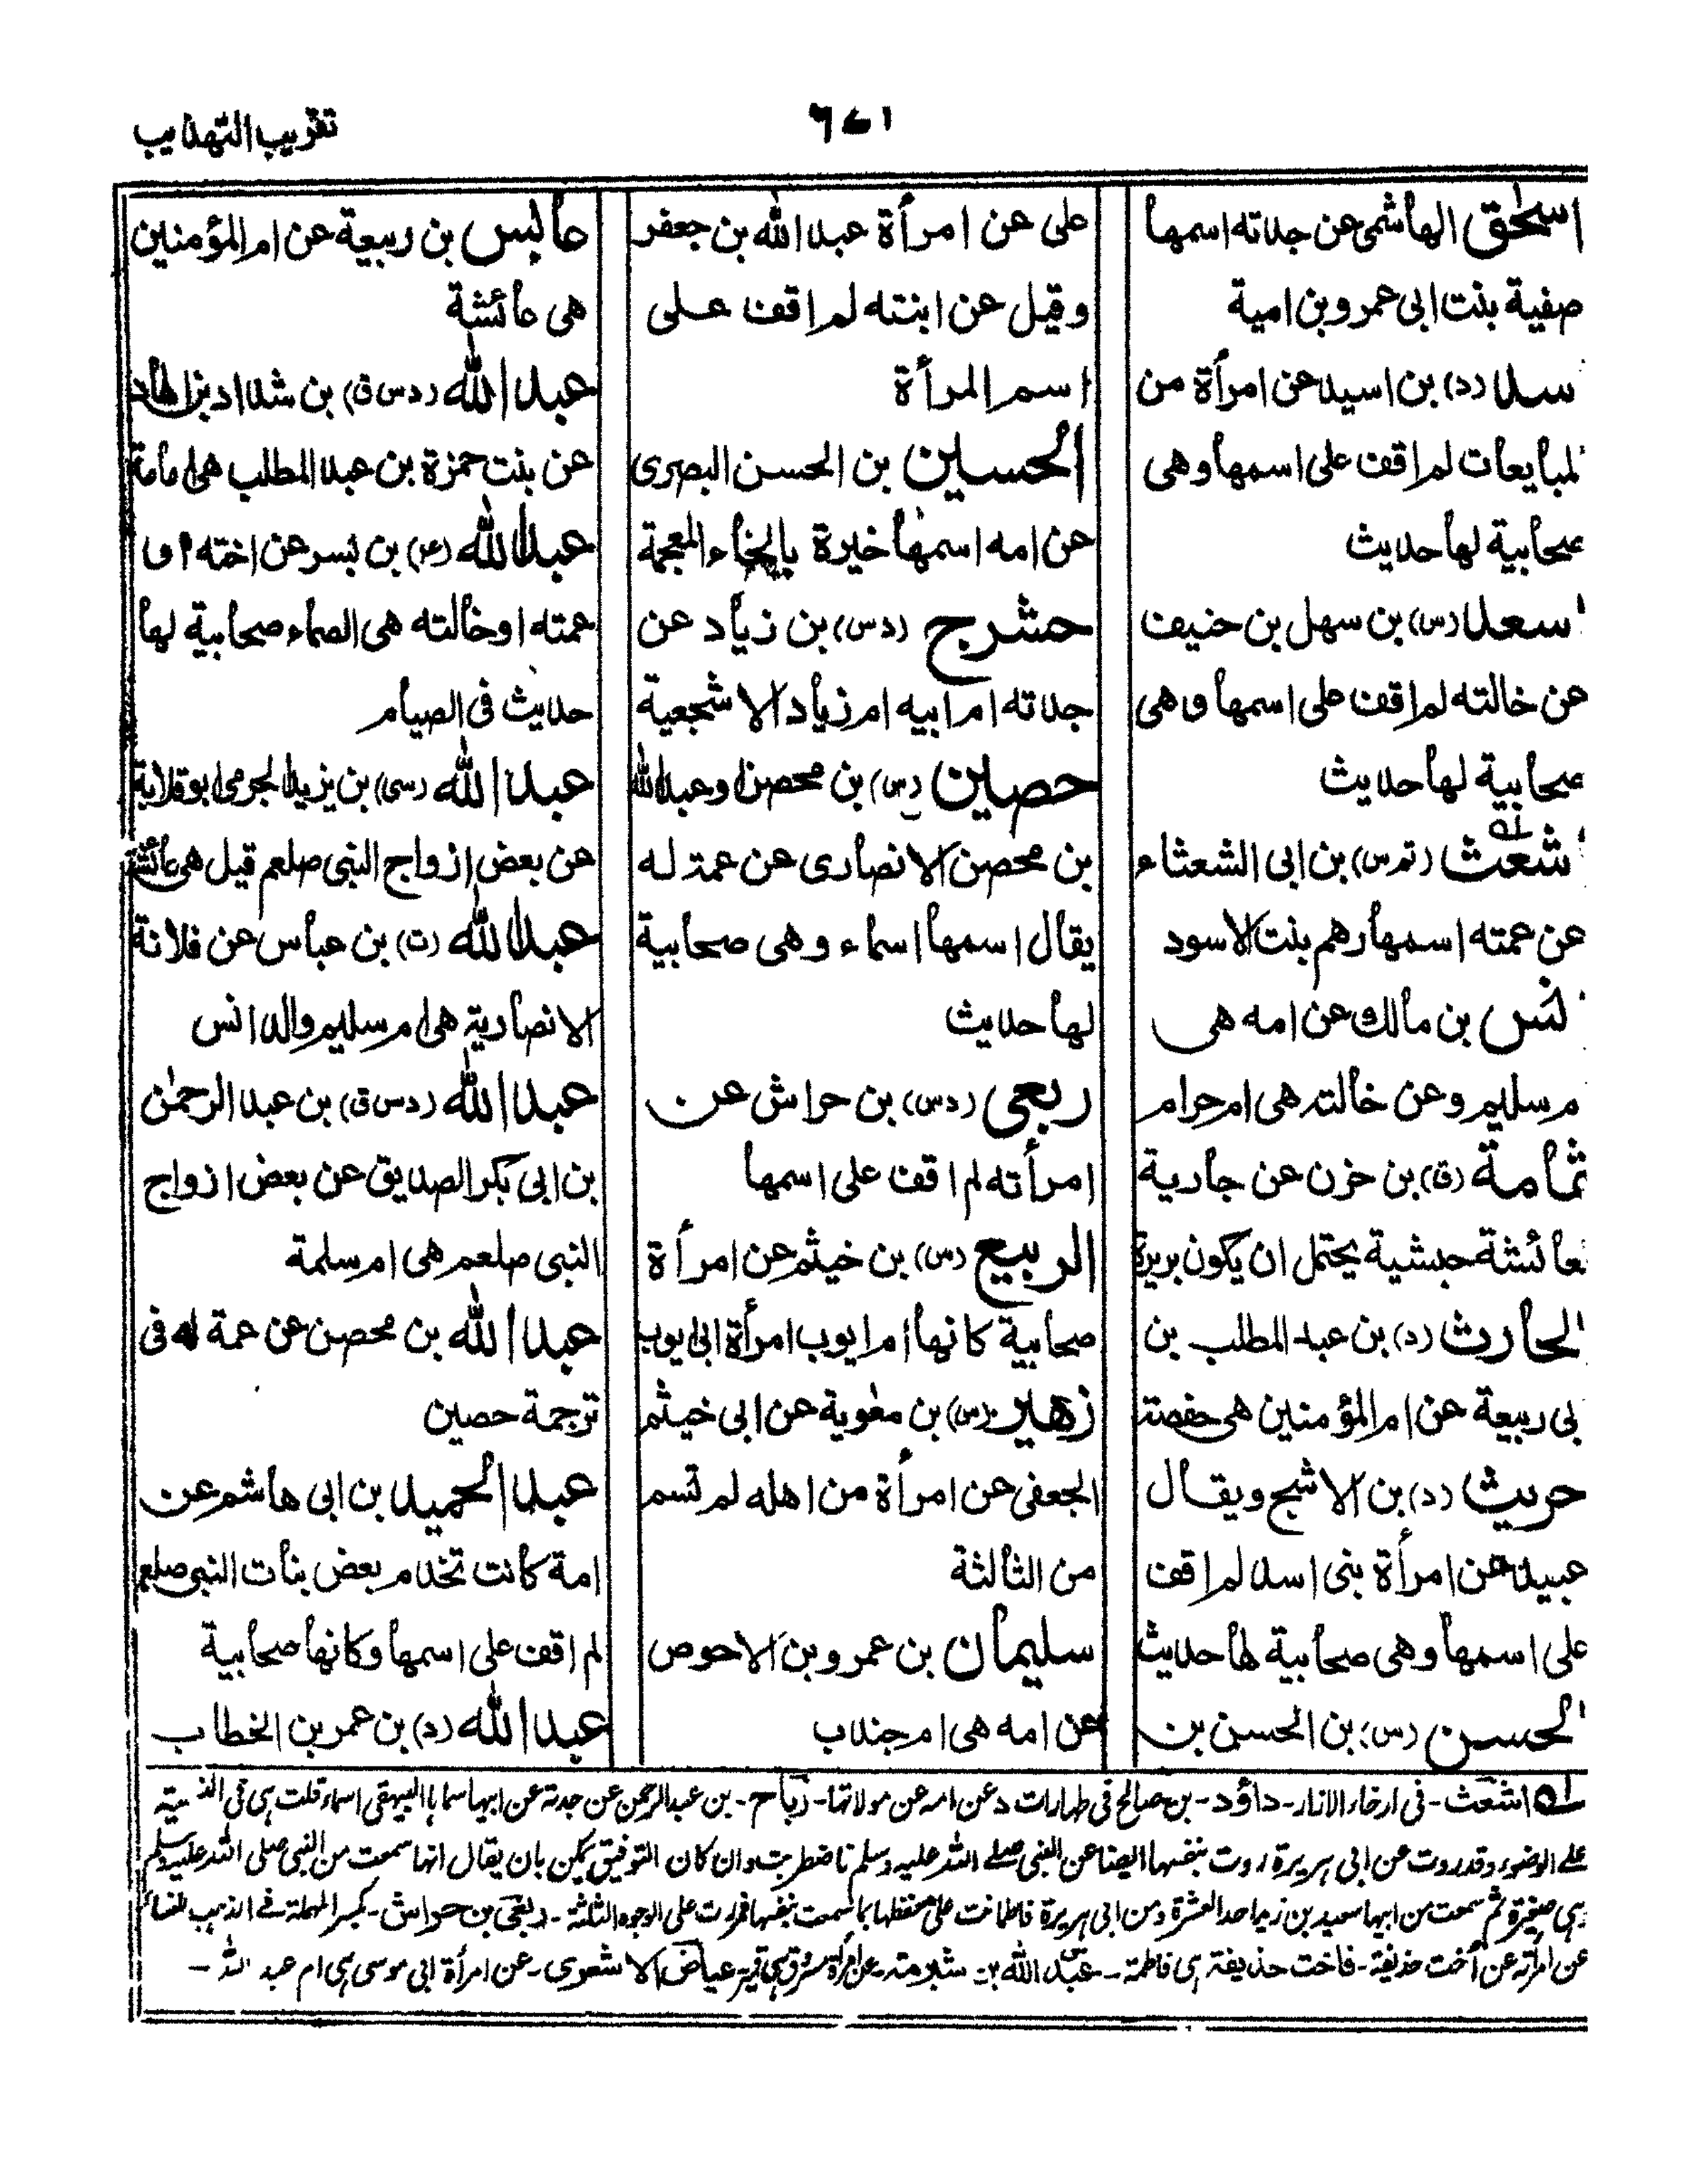 تقريب التهذيب
٤٧١
اسحٰق الهاشمى عن جدته اسمها
صفية بنت ابى عمرو بن امية
سد (د) بن اسيد عن امرأة من
لمبايعات لم اقف على اسمها وهى
صحابية لها حديث
اسعد (س) بن سهل بن حنيف
عن خالته لم اقف على اسمها وهى
صحابية لها حديث
شعث (تم س) بن ابى الشعثاء
عن عمته اسمها رهم بنت الاسود
نس بن مالك عن امه هى
م سليم وعن خالته هى ام حرام
ثمامة (ق) بن حزن عن جارية
لعائشة حبشية يحتمل ان يكون بريرة
الحارث (د) بن عبد المطلب بن
بى ربيعة عن ام المؤمنين هى حفصة
حريث (د) بن الاشج ويقال
عبيد عن امرأة بنى اسد لم اقف
على اسمها وهى صحابية لها حديث
الحسن (س) بن الحسن بن
على عن امرأة عبد الله بن جعفر
وقيل عن ابنته لم اقف على
اسم المرأة
الحسين بن الحسن البصرى
عن امه اسمها خيرة بالخاء المعجمة
حشرج (د س) بن زياد عن
جدته ام ابيه ام زياد الاشجعية
حصين (س) بن محصن وعبد الله
بن محصن الانصارى عن عمة له
يقال اسمها اسماء وهى صحابية
لها حديث
ربعى (د س) بن حراش عن
امرأته لم اقف على اسمها
الربيع (س) بن خيثم عن امرأة
صحابية كانها ام ايوب امرأة ابى ايوب
زهير (س) بن معٰوية عن ابى خيثم
الجعفى عن امرأة من اهله لم تسم
من الثالثة
سليمان بن عمرو بن الاحوص
عن امه هى ام جندب
عابس بن ربيعة عن ام المؤمنين
هى عائشة
عبد الله (د س ق) بن شداد بن الهاد
عن بنت حمزة بن عبد المطلب هى امامة
عبد الله (عر) بن بسر عن اخته او
عمته او خالته هى الصماء صحابية لها
حديث فى الصيام
عبد الله (سى) بن يزيد الجرمى ابو قلابة
عن بعض ازواج النبى صلعم قيل هى عائشة
عبد الله (ت) بن عباس عن فلانة
الانصارية هى ام سليم والد انس
عبد الله (د س ق) بن عبد الرحمٰن
بن ابى بكر الصديق عن بعض ازواج
النبى صلعم هى ام سلمة
عبد الله بن محصن عن عمة له فى
ترجمة حصين
عبد الحميد بن ابى هاشم عن
امة كانت تخدم بعض بنات النبى صلعم
لم اقف على اسمها وكانها صحابية
عبد الله (د) بن عمر بن الخطاب
له اشعث - فى ارخاء الازار - داؤد - بن صالح فى طهارات د عن امه عن مولاتها - رباح - بن عبد الرحمن عن جدته عن ابيها سماها البيهقى اسماء قلت هى فى
على الوضوء وقد روت عن ابى هريرة روت بنفسها ايضا عن النبى صلى الله عليه وسلم فاضطربت وان كان التوفيق يمكن بان يقال انها سمعت من النبى صلى الله عليه وسلم
هى صغيرة ثم سمعت من ابيها سعيد بن زيد احد العشرة ومن ابى هريرة فاطمانت على حفظها بما سمعت بنفسها فروت على الوجوه الثلثة - ربعى بن حراش - بكسر المهملة فى
عن امرأته عن أخت حذيفة - فاخت حذيفة هى فاطمة - عبد الله بن شبرمة - عن امرأة مسروق هى قمير عياض الاشعرى - عن امرأة ابى موسى هى ام عبد الله -